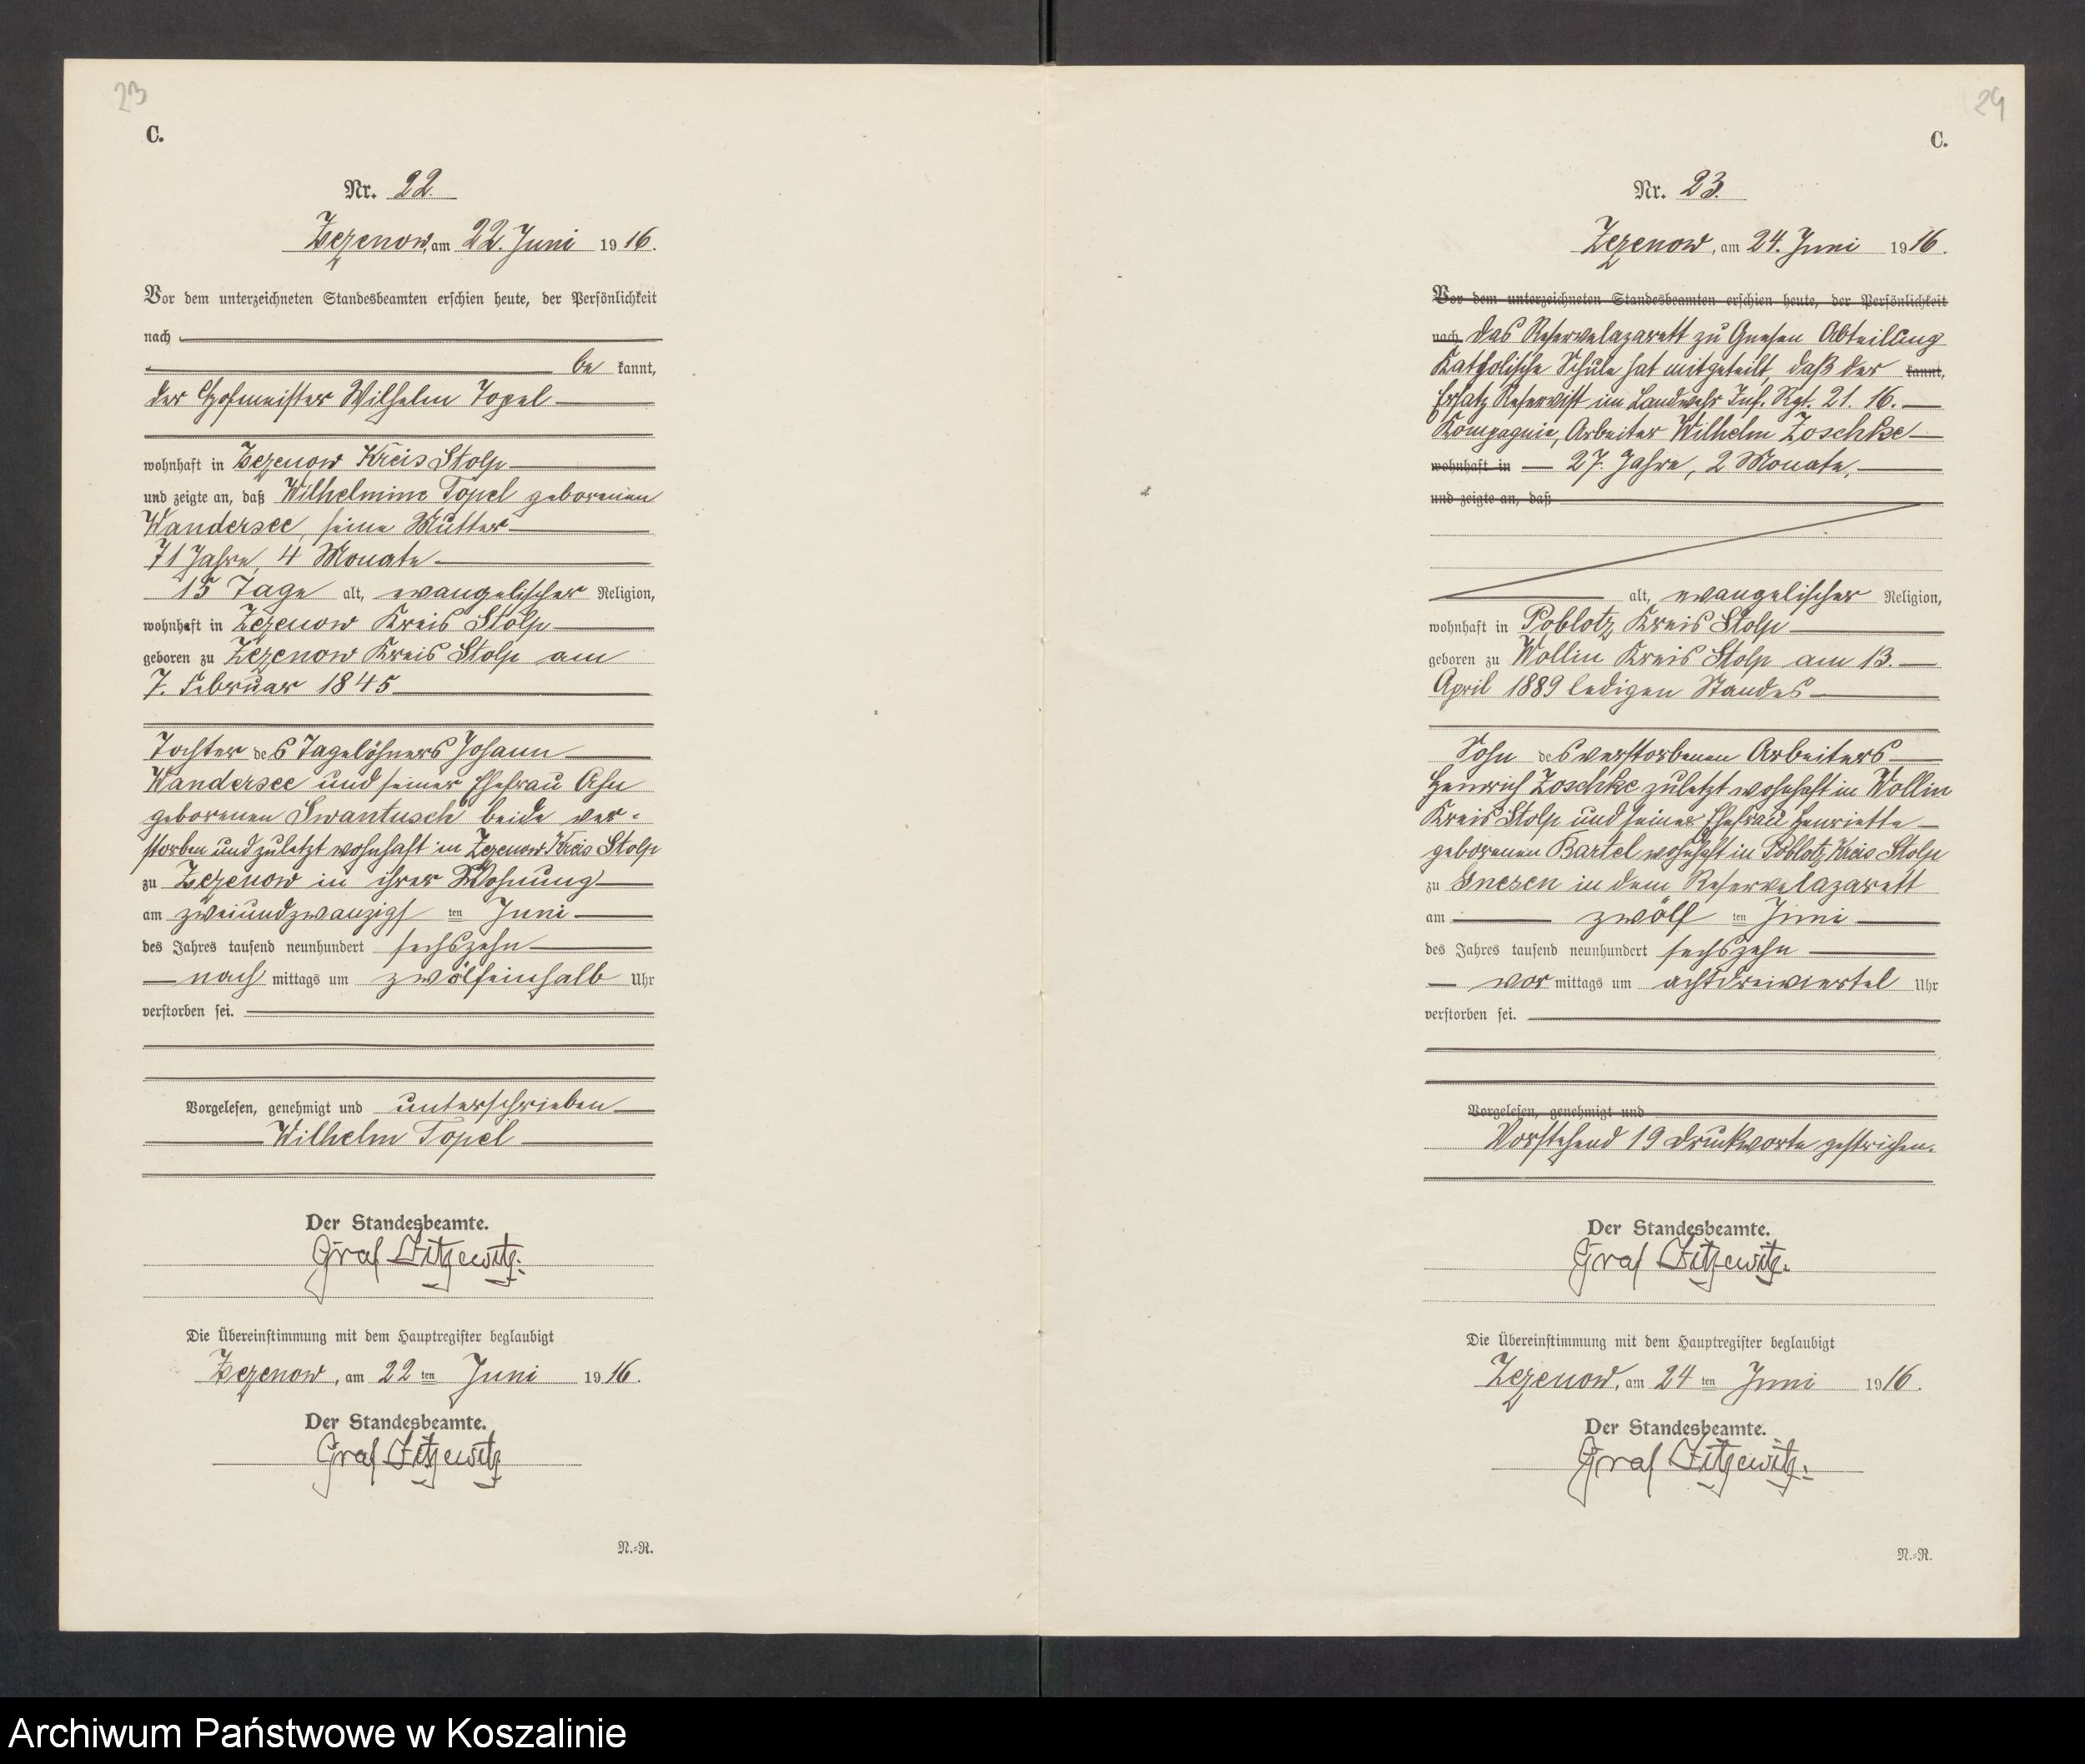 23
C.
Nr. 22.
Zezenow, am 22. Juni 1916.
Vor dem unterzeichneten Standesbeamten erschien heute, der Persönlichkeit
nach
be kannt,
der Hofmeister Wilhelm Topel
wohnhaft in Zezenow Kreis Stolp
und zeigte an, daß Wilhelmine Topel geborenen
Wandersee, seine Mutter
71 Jahre, 4 Monate
15 Tage alt, evangelischer Religion,
wohnhaft in Zezenow Kreis Stolp
geboren zu Zezenow Kreis Stolp am
7. Februar 1845
Tochter des Tagelöhners Johann
Wandersee und seiner Ehefrau
geborenen Swantusch beide ver-
storben und zuletzt wohnhaft in Zezenow Kreis Stolp
zu Zezenow in ihrer Wohnung
am zweiundzwanzigs ten Juni
des Jahres tausend neunhundert sechszehn
nach mittags um zwölfeinhalb Uhr
verstorben sei.
Vorgelesen, genehmigt und unterschrieben
Wilhelm Topel
Der Standesbeamte.
Graf Zitzewitz.
Die Übereinstimmung mit dem Hauptregister beglaubigt
Zezenow, am 22 ten Juni 1916.
Der Standesbeamte.
Graf Zitzewitz
N.-R.
24
C.
Nr. 23.
Zezenow, am 24. Juni 1916.
Vor dem unterzeichneten Standesbeamten erschien heute, der Persönlichkeit
nach Das Reservelazarett zu Gnesen Abteilung
Katholische Schule hat mitgeteilt, daß der kannt,
Ersatz Reservist im Landwehr Inf. Rgt. 21. 16.
Kompagnie, Arbeiter Wilhelm Zoschke
wohnhaft in 27 Jahre, 2 Monate,
und zeigte an, daß
alt, evangelischer Religion,
wohnhaft in Poblotz Kreis Stolp
geboren zu Wollin Kreis Stolp am 13.
April 1889 ledigen Standes
Sohn des verstorbenen Arbeiters
Henrich Zoschke zuletzt wohnhaft in Wollin
Kreis Stolp und seiner Ehefrau Henriette
geborenen Bartel wohnhaft in Poblotz Kreis Stolp
zu Gnesen in dem Reservelazarett
am zwölf ten Juni
des Jahres tausend neunhundert sechszehn
vor mittags um achtdreiviertel Uhr
verstorben sei.
Vorgelesen, genehmigt und
Vorstehend 19 Druckworte gestrichen.
Der Standesbeamte.
Graf Zitzewitz.
Die Übereinstimmung mit dem Hauptregister beglaubigt
Zezenow, am 24 ten Juni 1916.
Der Standesbeamte.
Graf Zitzewitz.
N.-R.
Archiwum Państwowe w Koszalinie